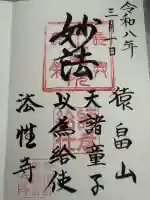 令和八年
三月十日
猿畠山
妙法
天諸童子
以為給使
法性寺